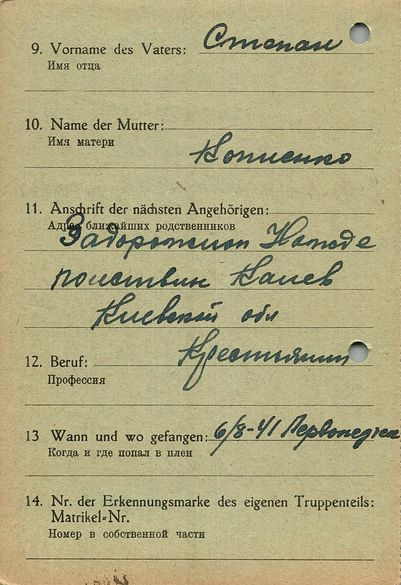 9. Vorname des Vaters: Степан
Имя отца
10. Name der Mutter:
Имя матери
Копиенко
11. Anschrift der nächsten Angehörigen:
Адрес ближайших родственников
Киевской обл
12. Beruf: Крестьянин
Профессия
13 Wann und wo gefangen: 6/8-41
Когда и где попал в плен
14. Nr. der Erkennungsmarke des eigenen Truppenteils:
Matrikel-Nr.
Номер в собственной части